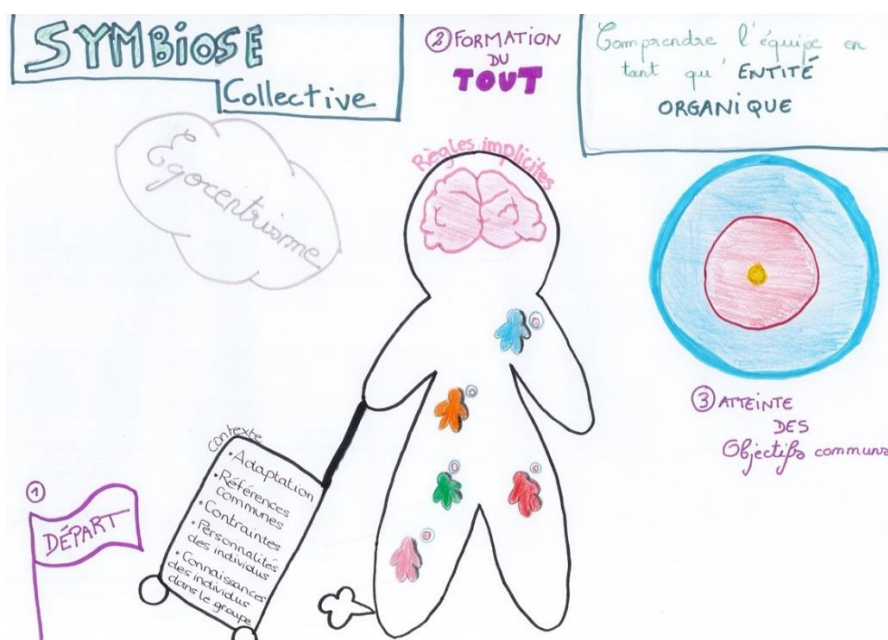 SYMBiOSE
Collective
② FORMATION
DU
TOUT
Comprendre l'équipe en
tant qu' ENTITÉ
ORGANIQUE
Egocentrisme
Règles implicites
③ ATTEINTE
DES
Objectifs communs
contexte
• Adaptation
• Références
communes
• Contraintes
• Personnalités
des individus
• Connaissances
des individus
dans le groupe
①
DÉPART